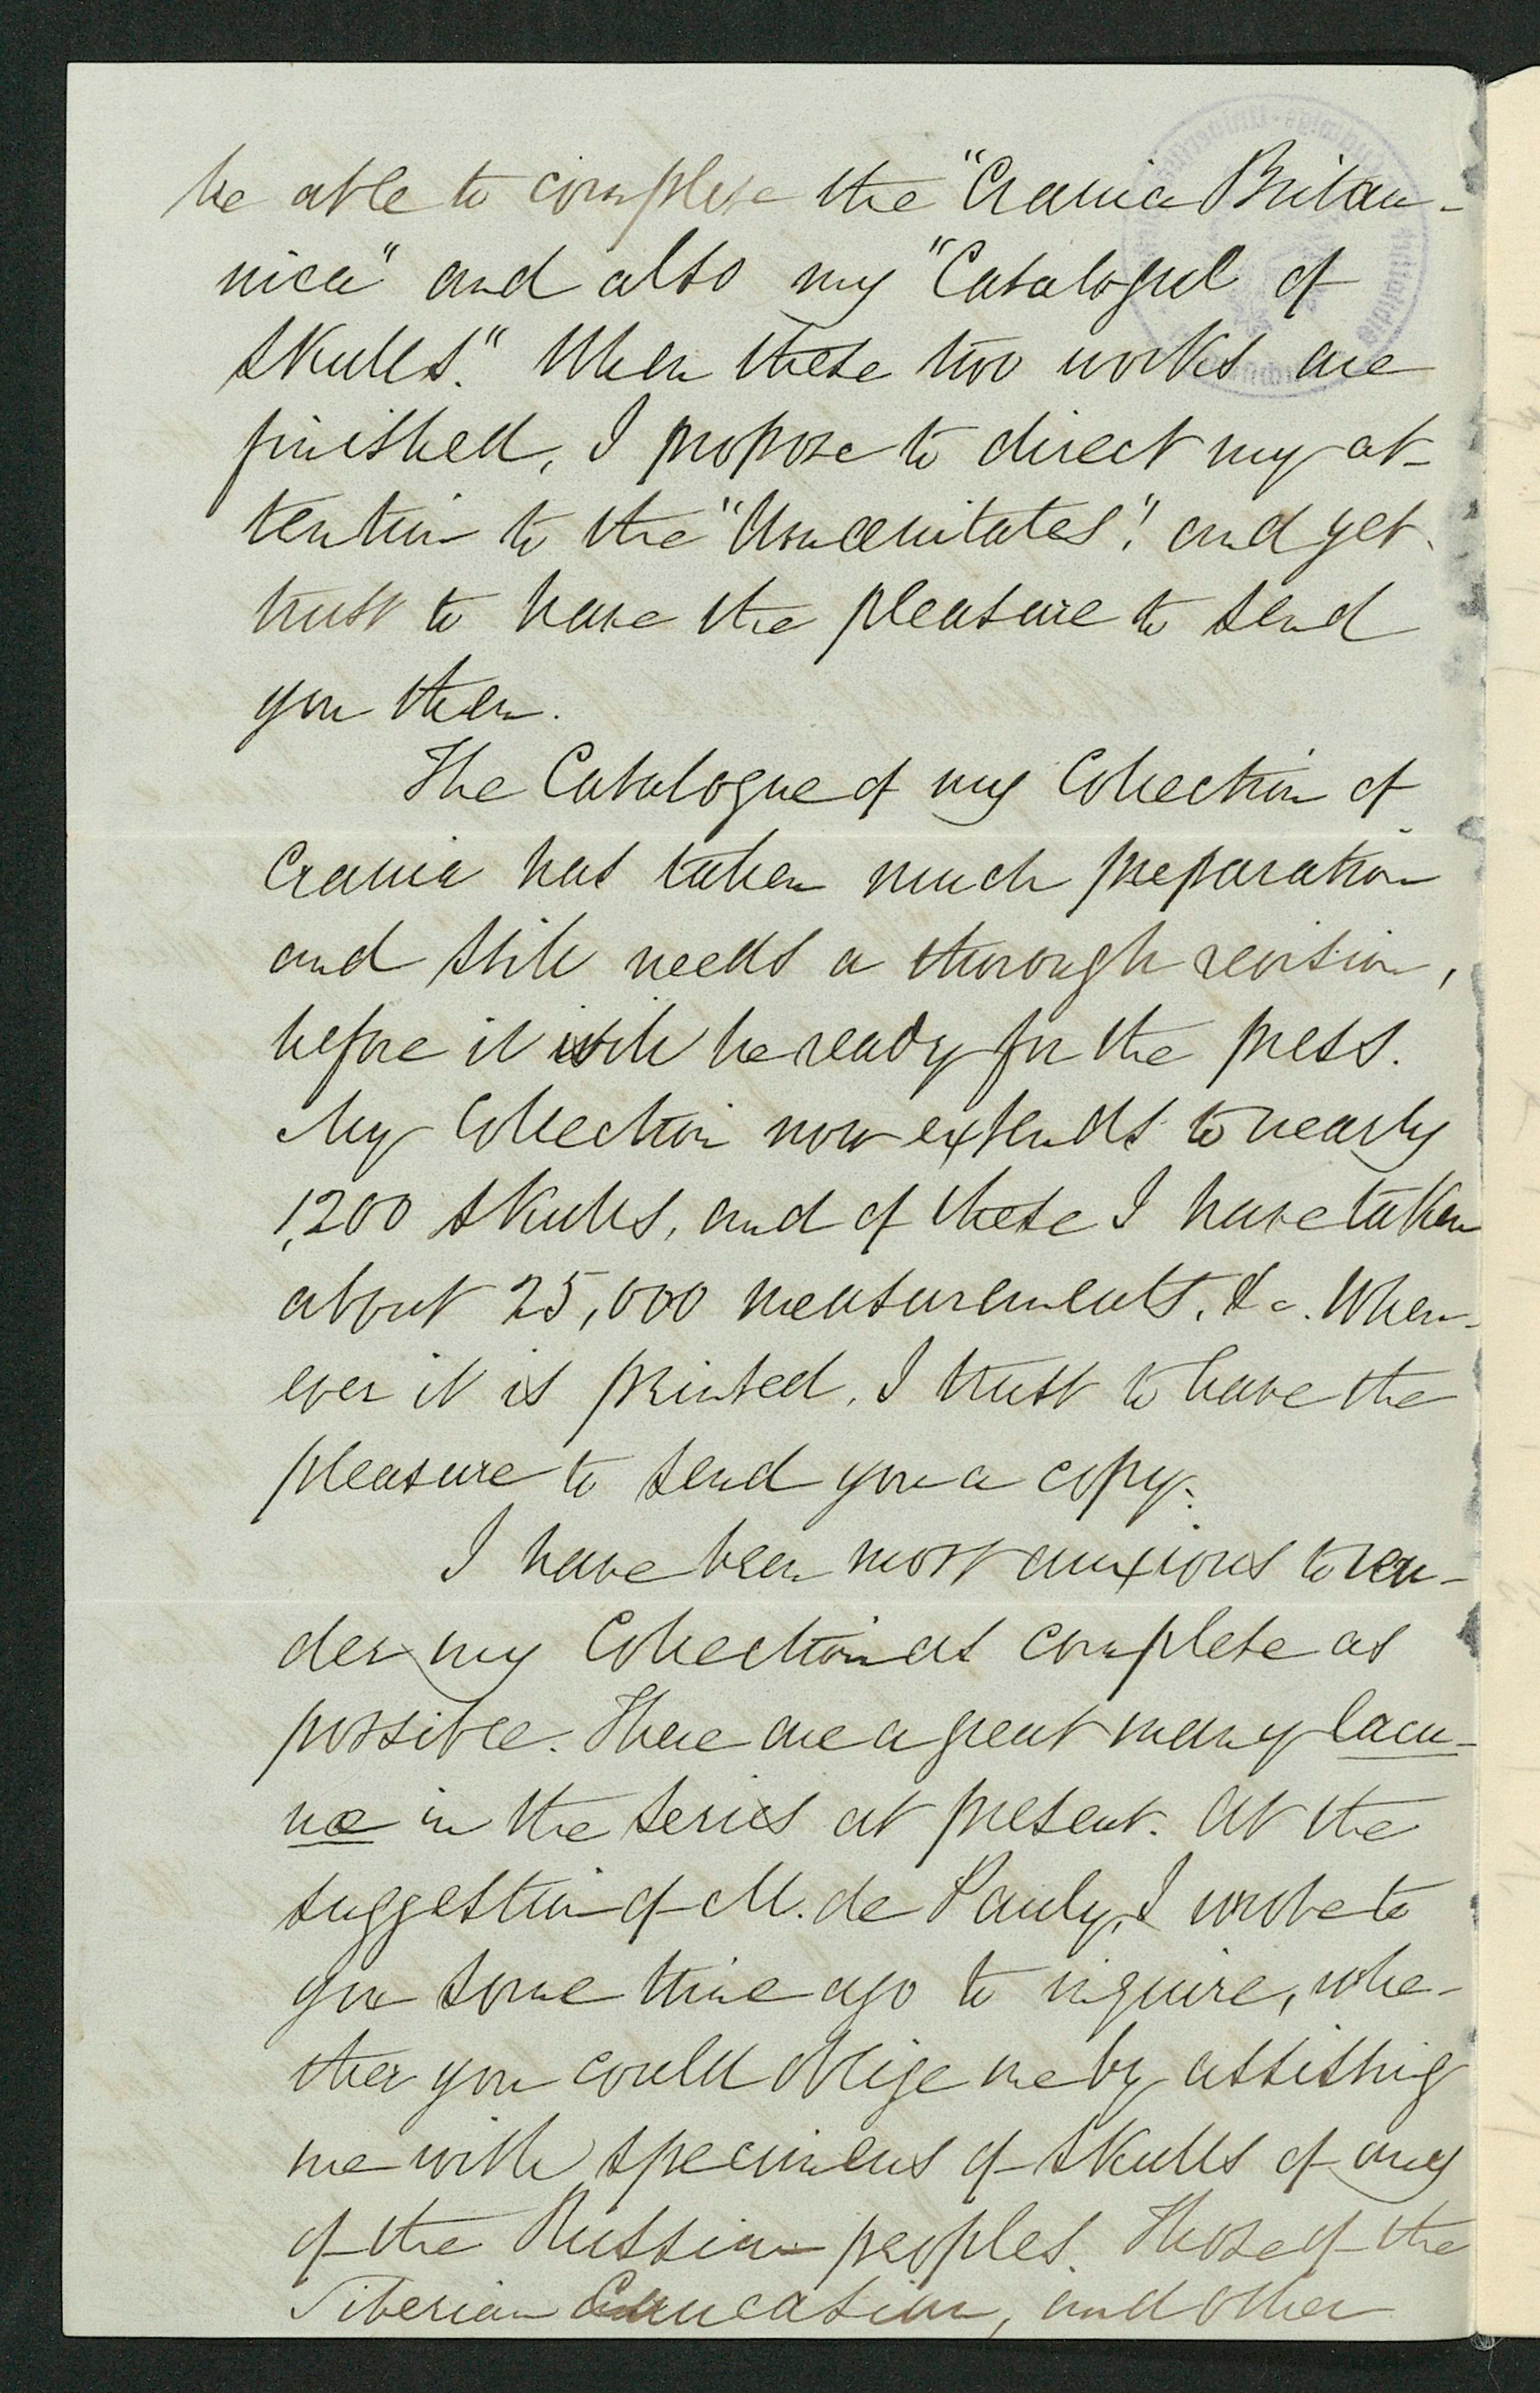 be able to complete the "Crania Britan-
nica" and also my "Catalogue of
Skulls." When these two works are
finished, I propose to direct my at-
tention to the
and yet
trust to have the pleasure to send
you them.
The Catalogue of my Collection of
Crania has taken much preparation
and still needs a thorough revision,
before it will be ready for the press.
My Collection now extends to nearly
1,200 skulls, and of these I have taken
about 25,000 measurements, &c. When-
ever it is printed, I trust to have the
pleasure to send you a copy.
I have been most anxious to ren-
der my Collection as complete as
possible. There are a great many lacu-
næ in the series at present. At the
suggestion of M. de Pauly, I wrote to
you some time ago to inquire, whe-
ther you could oblige me by assisting
me with specimens of skulls of any
of the Russian peoples. Those of the
Siberian Caucasian, and other